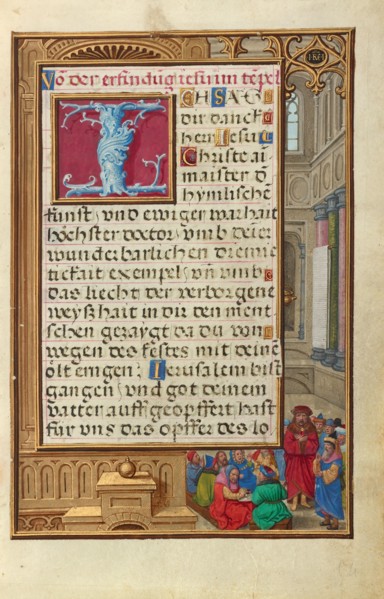 Võ der erfindũg iesu im tẽpel
ICH SAG
dir danck
herr Jesu
Christe ai
maister d̃
hymlischẽ
kunst / vnd ewiger warhait
höchster doctor / vmb deiner
wunderbarlichen diemie
tickait exempel / vñ vmb
das liecht der verborgenẽ
weyßhait in dir den ment
schen gezaygt da du von
wegen des festes mit deinẽ
öltern gen Jerusalem bist
gangen / vnd got deinem
vatter auff geopffert hast
für vns das opffer des lo